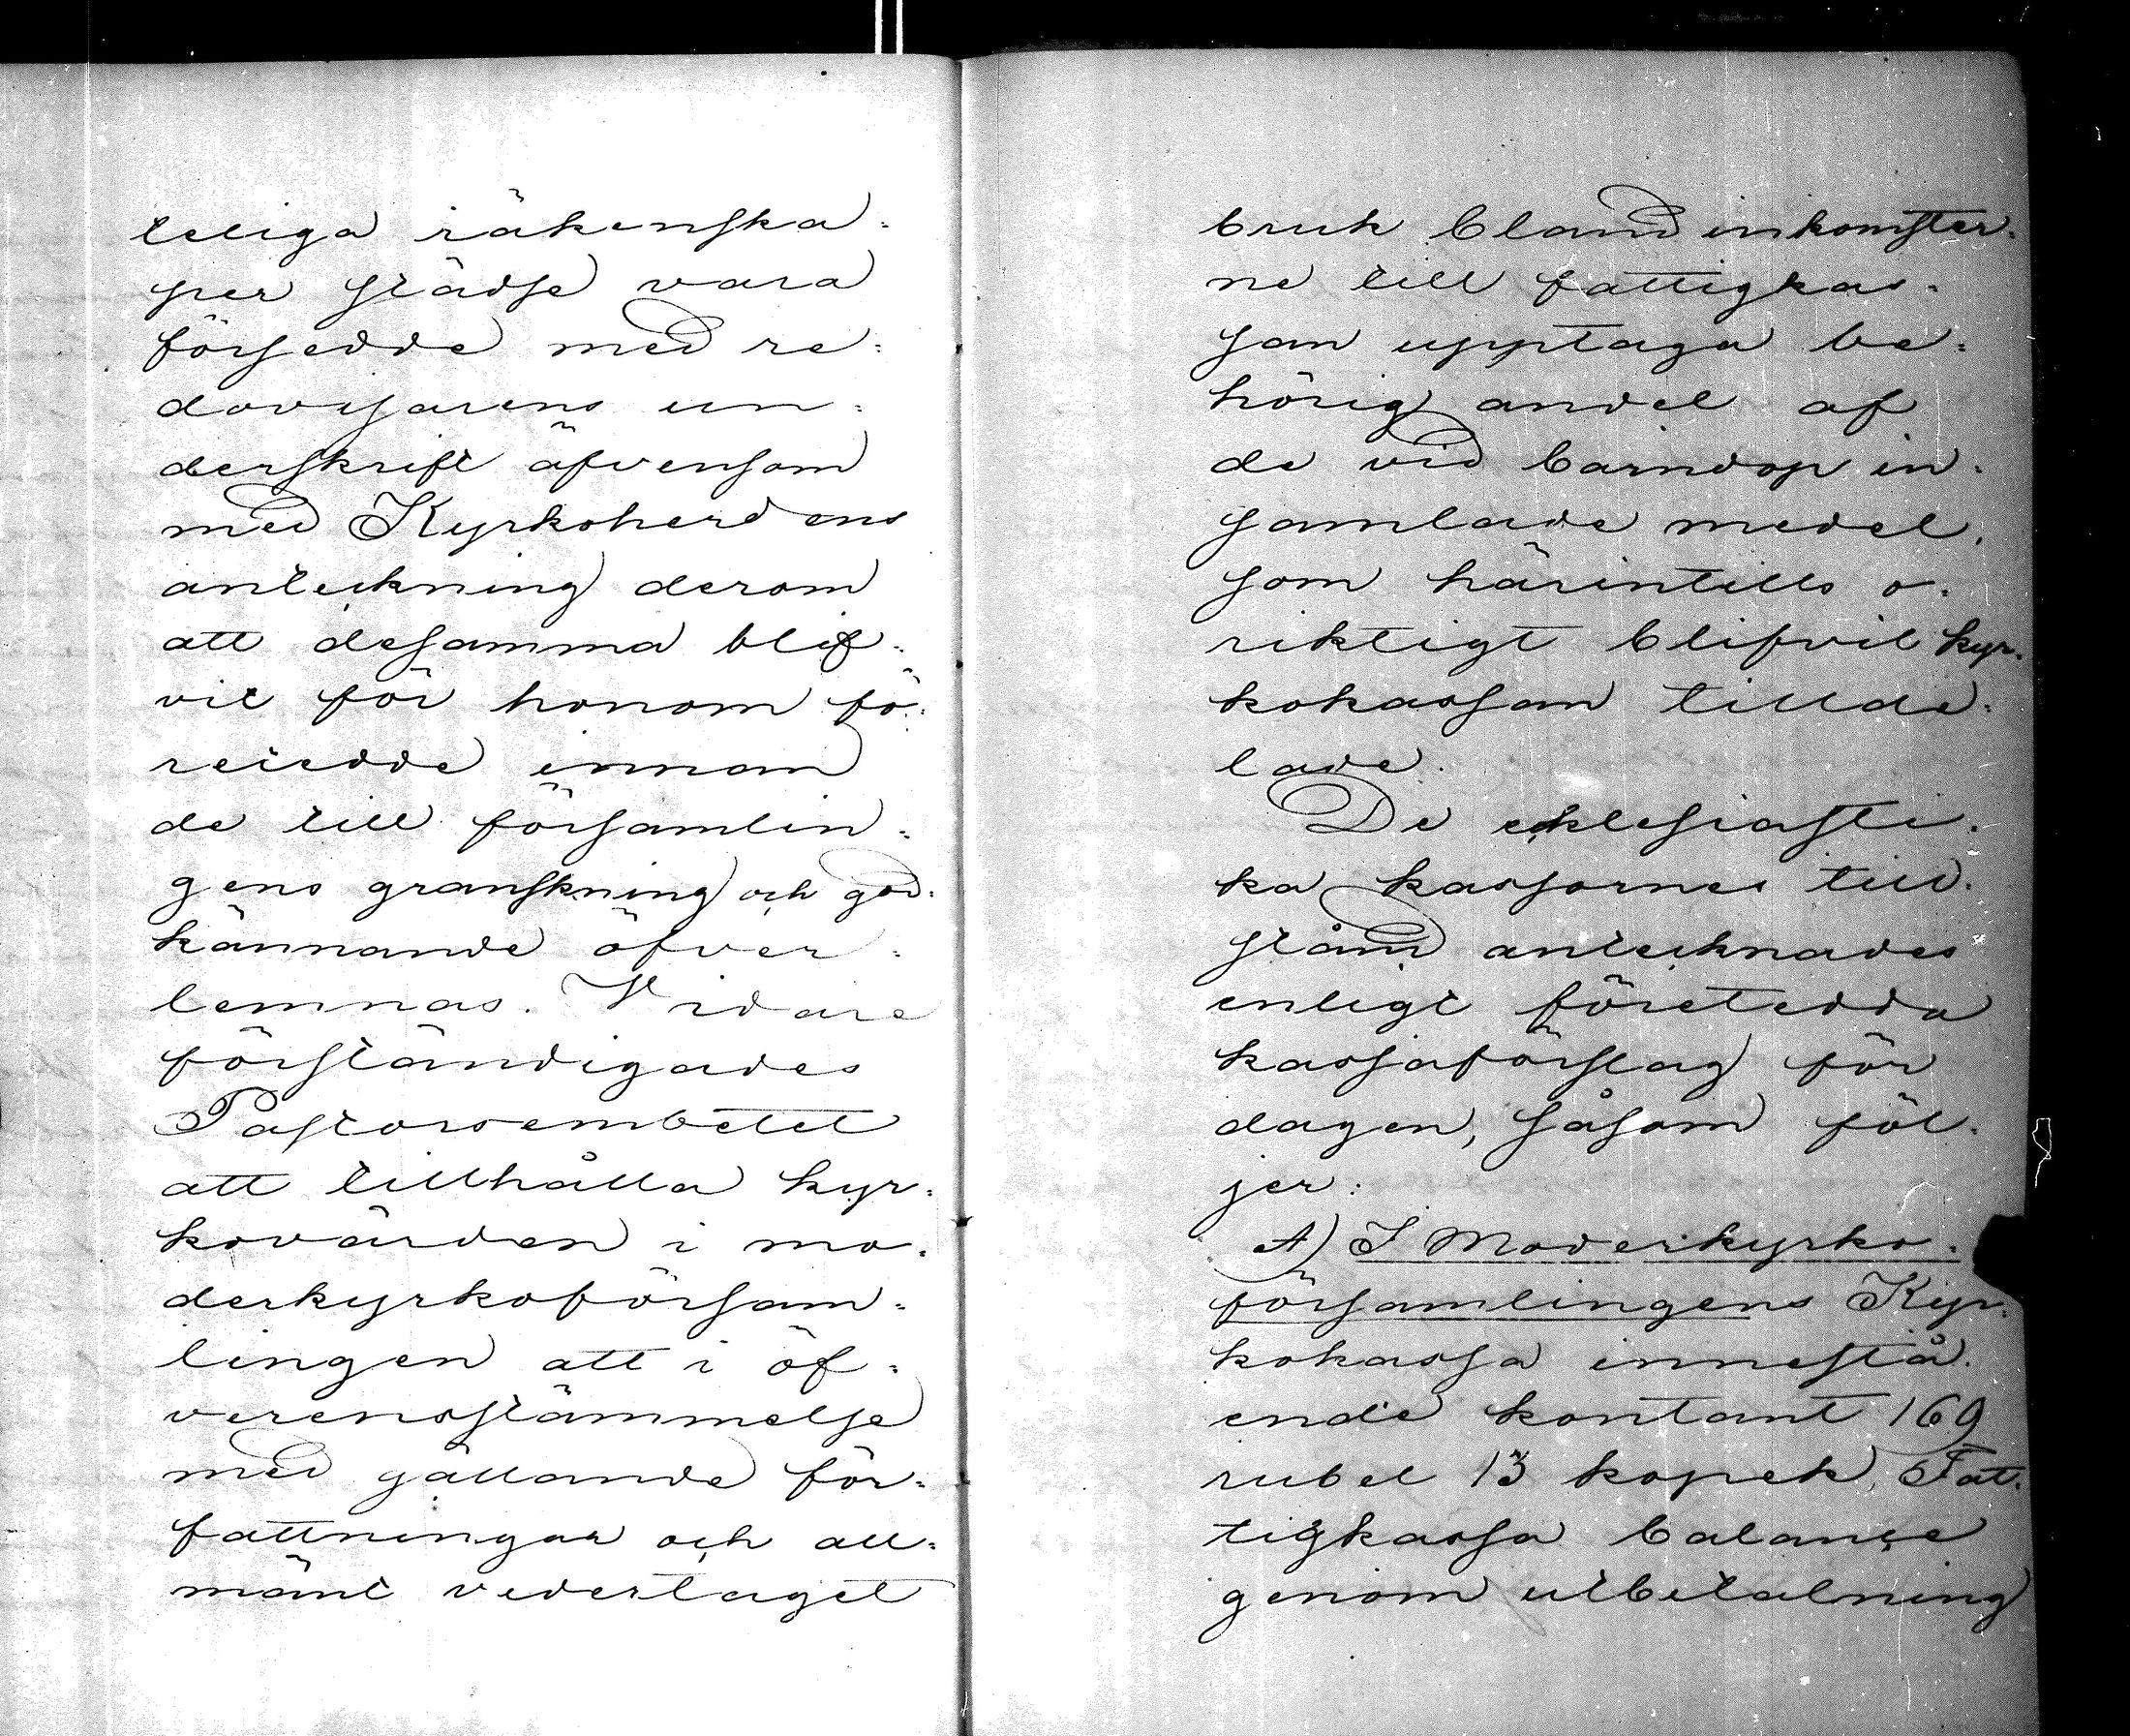 teliga räkenska-
per städse vara
försedde med re-
dovisarens un-
derskrift äfvensom
med Kyrkoherdens
anteckning derom
att desamma blif-
vit för honom fö-
retedde innan
de till församlin-
gens granskning och god-
kännande öfver-
lemnas. Vidare
förständigades
Pastorsembetet
att tillhålla kyr-
kovärden i mo-
derkyrkoförsam-
lingen att i öf-
verensstämmelse
med gällande för-
fattningar och all-
mänt vedertaget
bruk bland inkomster-
ne till fattigkas-
san upptaga be-
hörig andel af
de vid barndop in-
samlade medel,
som härintills o-
riktigt blifvit kyr-
kokassan tillde-
lade.
De ecklesiasti-
ka kassornes till-
stånd antecknades
enligt företedda
kassaförslag för
dagen, såsom föl-
jer:
A) I Moderkyrko-
församlingens Kyr-
kokassa innestå-
ende kontant 169
rubel 13 kopek, Fat-
tigkassa balance
genom utbetalning